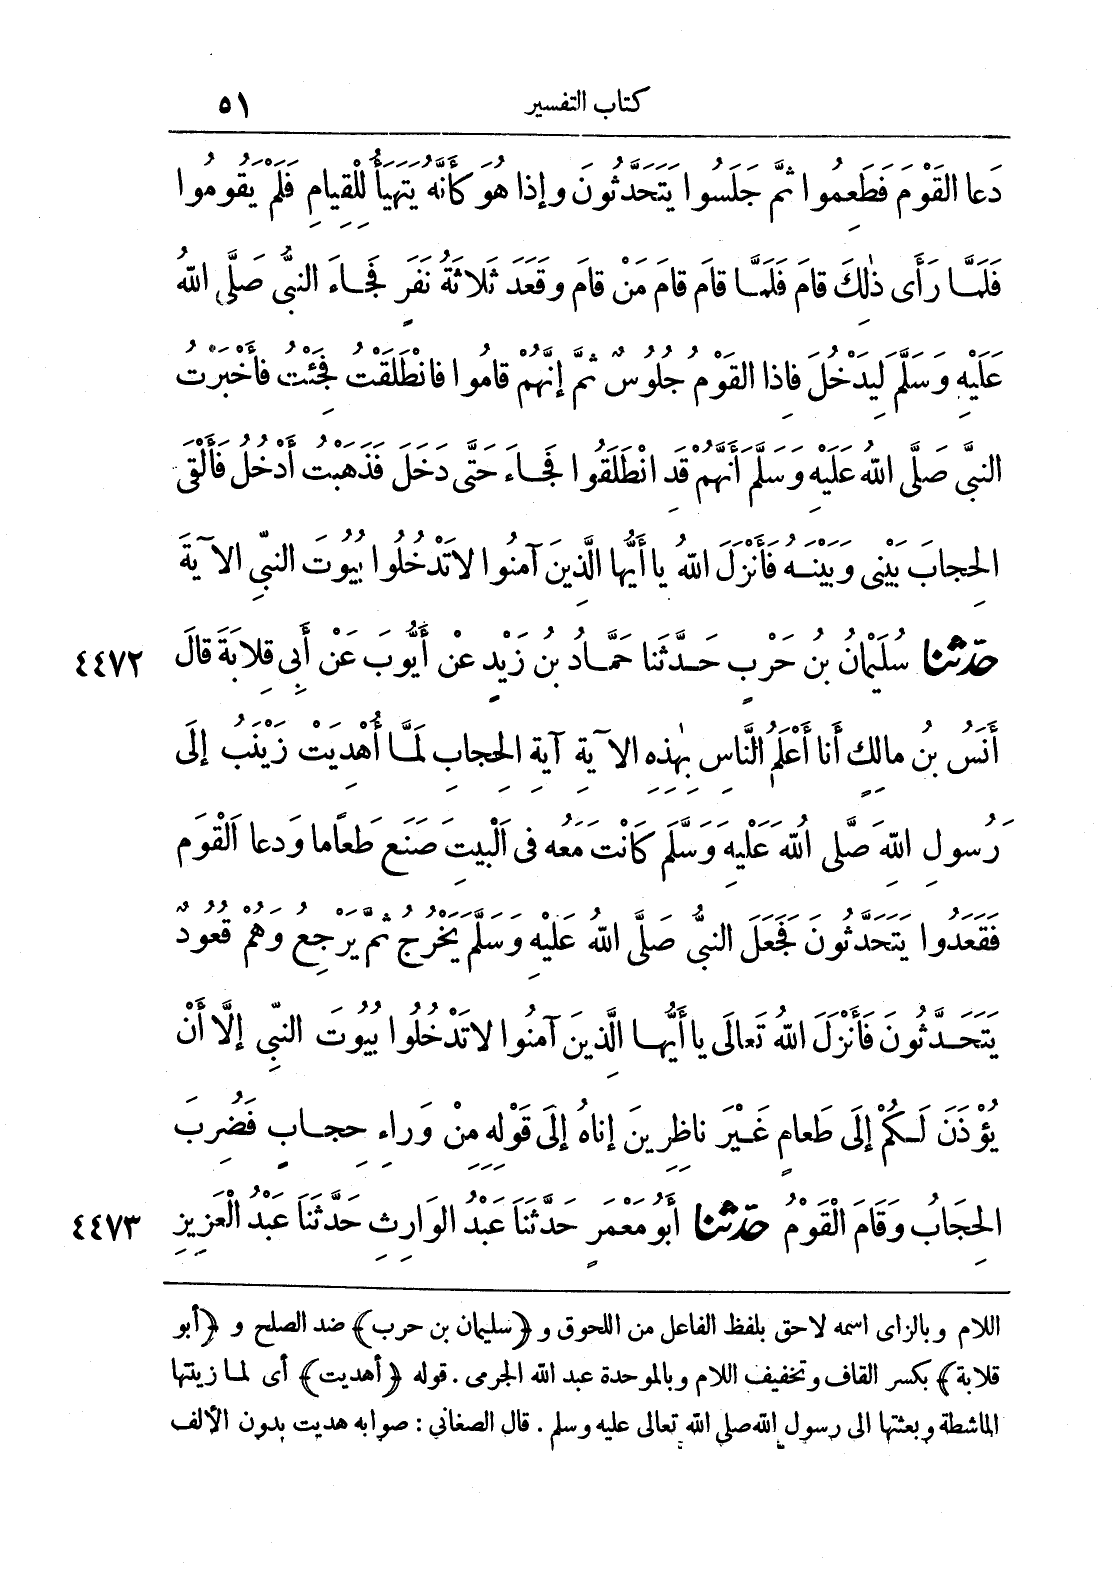 كتاب التفسير ٥١
دَعا القَوْمَ فَطَعِمُوا ثُمَّ جَلَسُوا يَتَحَدَّثُونَ وإذا هُوَ كَأَنَّهُ يَتَهَيَّأُ لِلْقِيامِ فَلَمْ يَقُومُوا
فَلَمَّا رَأَى ذٰلِكَ قامَ فَلَمَّا قامَ قامَ مَنْ قامَ وقَعَدَ ثَلاثَةُ نَفَرٍ فَجاءَ النبيُّ صَلَّى اللهُ
عَلَيْهِ وَسَلَّمَ لِيَدْخُلَ فاِذا القَوْمُ جُلُوسٌ ثُمَّ إنَّهُمْ قامُوا فانْطَلَقْتُ فَجِئْتُ فأَخْبَرْتُ
النبيَّ صَلَّى اللهُ عَلَيْهِ وَسَلَّمَ أَنَّهُمْ قَدِ انْطَلَقُوا فَجاءَ حَتَّى دَخَلَ فَذَهَبْتُ أَدْخُلُ فَأَلْقَى
الحِجابَ بَيْنِى وَبَيْنَهُ فَأَنْزَلَ اللهُ يا أَيُّها الَّذِينَ آمَنُوا لاتَدْخُلُوا بُيُوتَ النبيِّ الآيةَ
حدّثنا سُلَيْمانُ بنُ حَرْبٍ حَدَّثَنا حَمَّادُ بنُ زَيْدٍ عنْ أيُّوبَ عَنْ أَبِى قِلابَةَ قالَ ٤٤٧٢
أَنَسُ بنُ مالِكٍ أنا أَعْلَمُ النَّاسِ بِهٰذِهِ الآيةِ آيةِ الحِجابِ لَمَّا أُهْدِيَتْ زَيْنَبُ إلَى
رَسُولِ اللهِ صَلَّى اللهُ عَلَيْهِ وَسَلَّمَ كانَتْ مَعَهُ فِى البَيْتِ صَنَعَ طَعاماً ودَعا القَوْمَ
فَقَعَدُوا يَتَحَدَّثُونَ فَجَعَلَ النبيُّ صَلَّى اللهُ عَلَيْهِ وَسَلَّمَ يَخْرُجُ ثُمَّ يَرْجِعُ وَهُمْ قُعُودٌ
يَتَحَدَّثُونَ فَأَنْزَلَ اللهُ تَعالَى يا أَيُّها الَّذِينَ آمَنُوا لاتَدْخُلُوا بُيُوتَ النبيِّ إلَّا أَنْ
يُؤْذَنَ لَكُمْ إلَى طَعامٍ غَيْرَ ناظِرِينَ إناهُ إلَى قَوْلِهِ مِنْ وَراءِ حِجابٍ فَضُرِبَ
الحِجَابُ وَقَامَ الْقَوْمُ حدّثنا أَبُو مَعْمَرٍ حَدَّثَنَا عَبْدُ الوَارِثِ حَدَّثَنَا عَبْدُ الْعَزِيزِ ٤٤٧٣
اللام وبالزاى اسمه لاحق بلفظ الفاعل من اللحوق و ﴿سليمان بن حرب﴾ ضد الصلح و ﴿أبو
قلابة﴾ بكسر القاف وتخفيف اللام وبالموحدة عبد الله الجرمى . قوله ﴿أهديت﴾ أى لما زينتها
الماشطة وبعثتها الى رسول الله صلى الله تعالى عليه وسلم . قال الصغانى : صوابه هديت بدون الألف